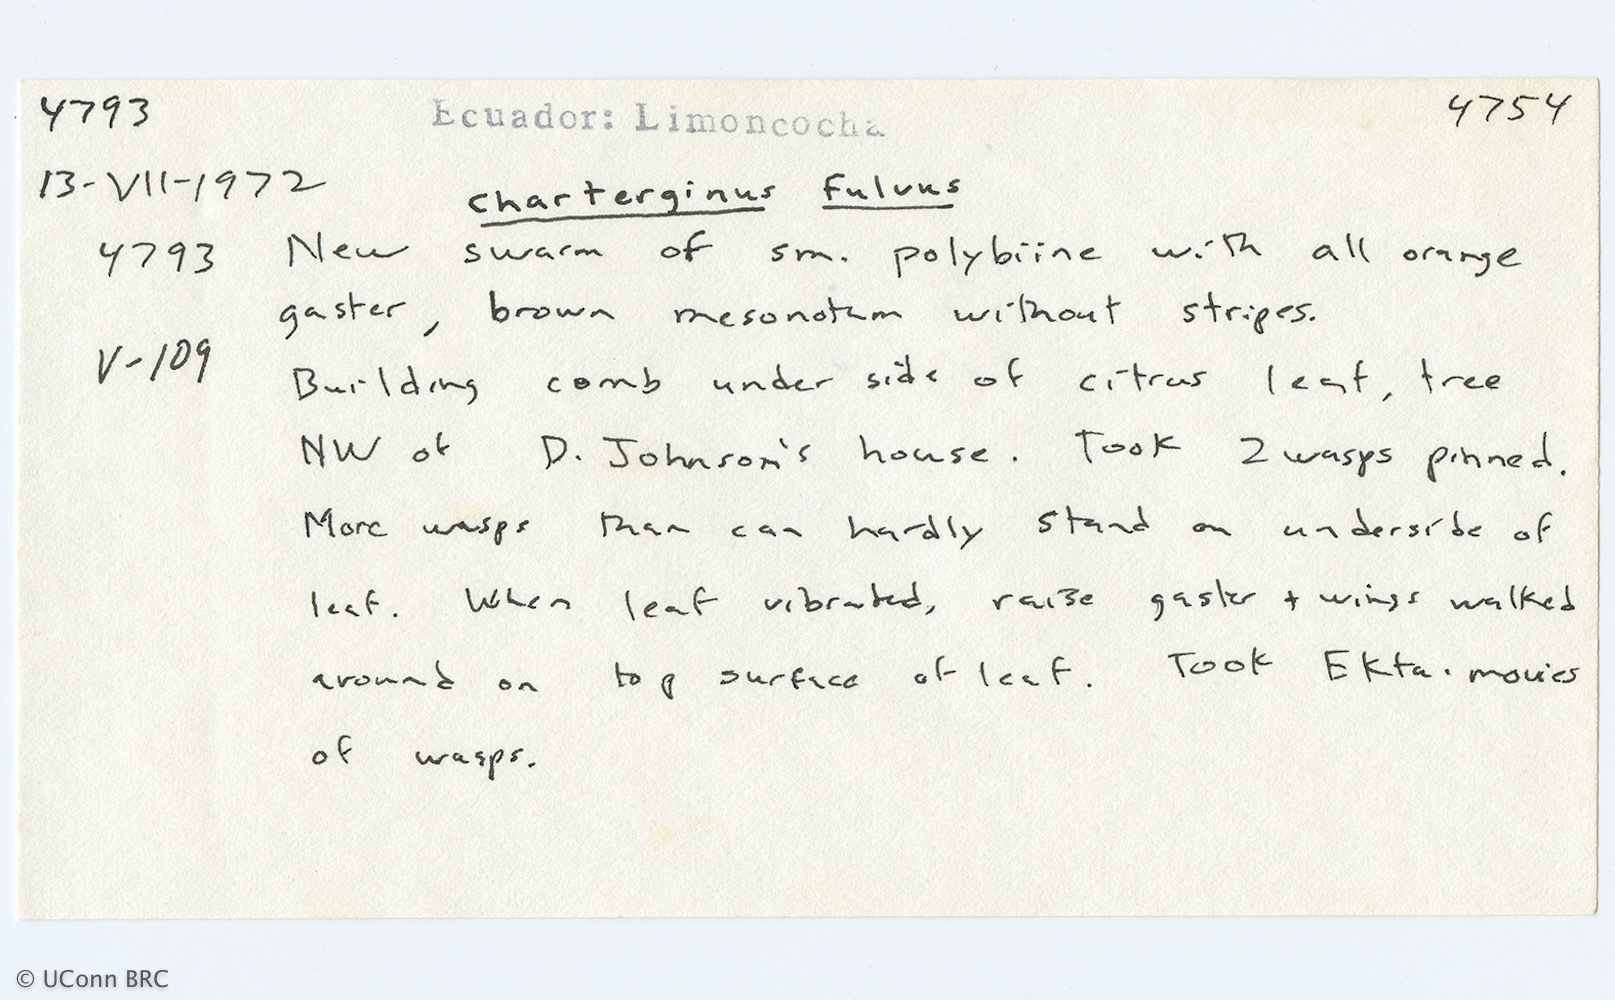 4793 Ecuador: Limoncocha 4754
13-VII-1972
Charterginus fulvus
4793 New swarm of sm. polybiine with all orange
gaster, brown mesonotum without stripes.
V-109
Building comb under side of citrus leaf, tree
NW of D. Johnson's house. Took 2 wasps pinned.
More wasps than can hardly stand on underside of
leaf. When leaf vibrated, raise gaster + wings walked
around on top surface of leaf. Took Ekta. movies
of wasps.
© UConn BRC